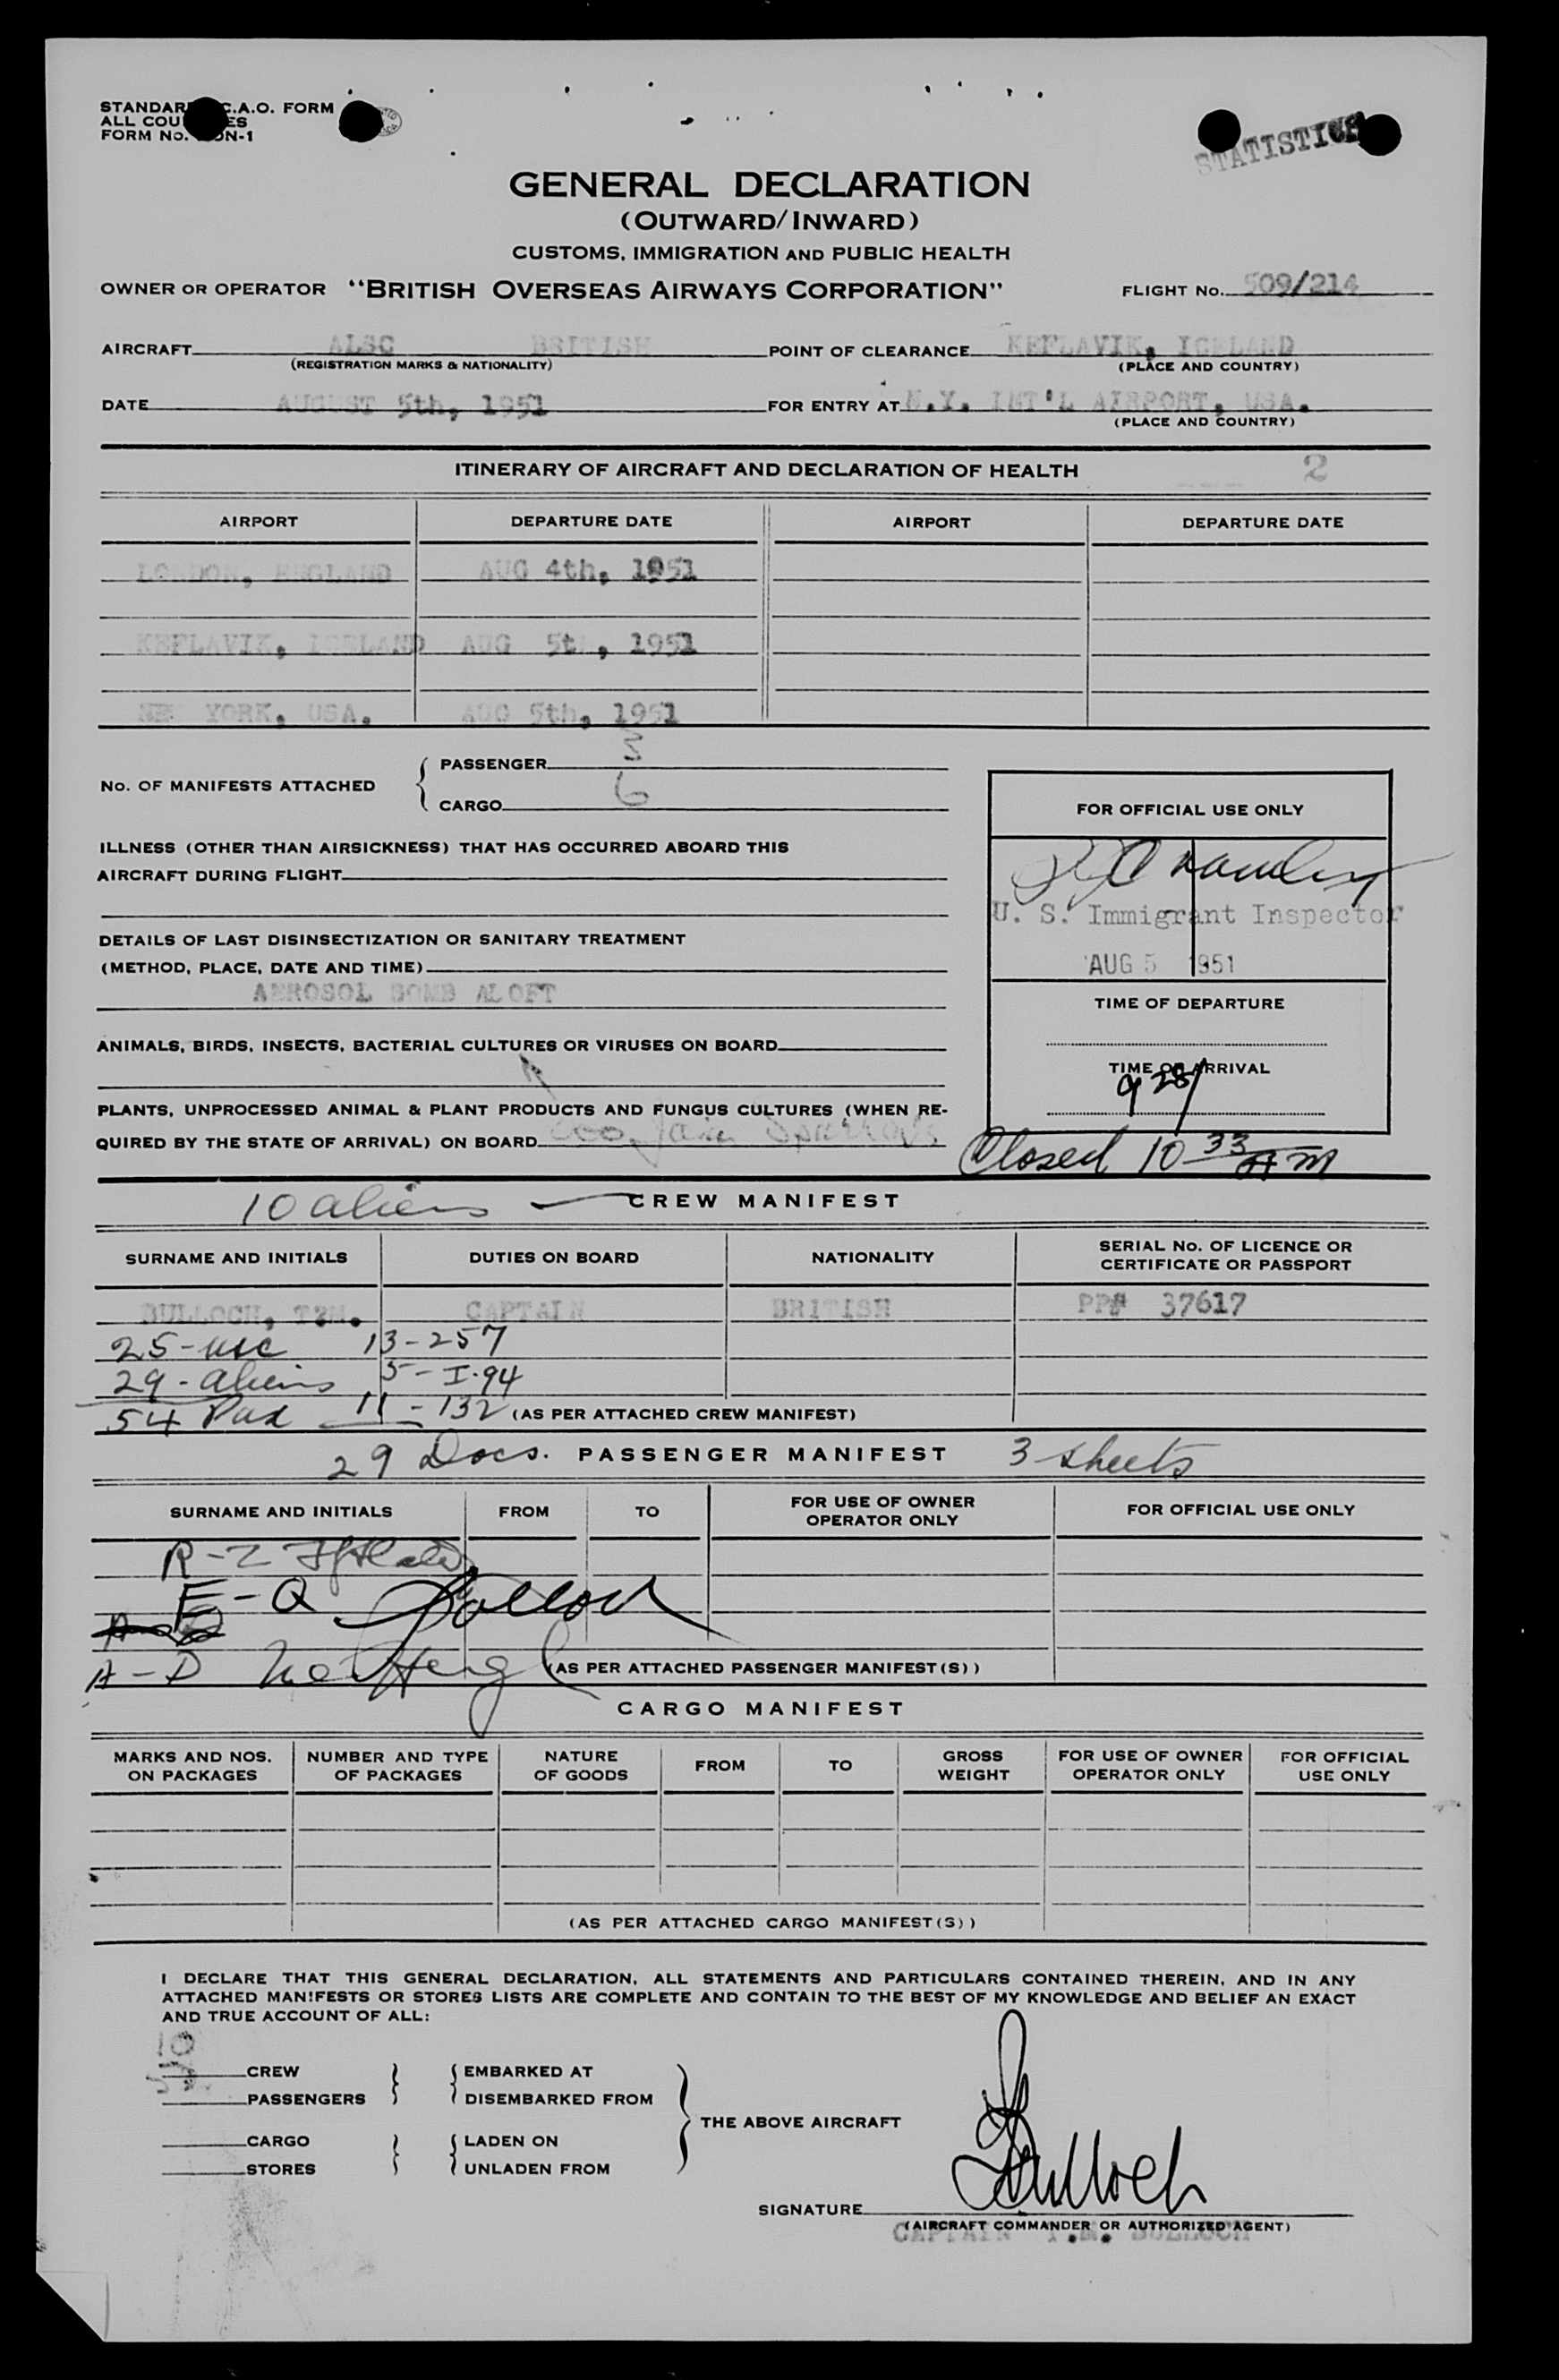 STANDARD I.C.A.O. FORM
ALL COUNTRIES
FORM No. ON-1
STATISTICS
GENERAL DECLARATION
(OUTWARD/INWARD)
CUSTOMS, IMMIGRATION AND PUBLIC HEALTH
OWNER OR OPERATOR "BRITISH OVERSEAS AIRWAYS CORPORATION" FLIGHT No. 509/214
AIRCRAFT ALSC BRITISH POINT OF CLEARANCE KEFLAVIK, ICELAND
(REGISTRATION MARKS & NATIONALITY) (PLACE AND COUNTRY)
DATE AUGUST 5th, 1951 FOR ENTRY AT N.Y. INT'L AIRPORT, USA.
(PLACE AND COUNTRY)
ITINERARY OF AIRCRAFT AND DECLARATION OF HEALTH 2
AIRPORT DEPARTURE DATE AIRPORT DEPARTURE DATE
LONDON, ENGLAND AUG 4th, 1951
KEFLAVIK, ICELAND AUG 5th, 1951
NEW YORK, USA. AUG 5th, 1951
No. OF MANIFESTS ATTACHED
PASSENGER 3
CARGO 6
ILLNESS (OTHER THAN AIRSICKNESS) THAT HAS OCCURRED ABOARD THIS
AIRCRAFT DURING FLIGHT
DETAILS OF LAST DISINSECTIZATION OR SANITARY TREATMENT
(METHOD, PLACE, DATE AND TIME)
AEROSOL BOMB ALOFT
ANIMALS, BIRDS, INSECTS, BACTERIAL CULTURES OR VIRUSES ON BOARD
PLANTS, UNPROCESSED ANIMAL & PLANT PRODUCTS AND FUNGUS CULTURES (WHEN RE-
QUIRED BY THE STATE OF ARRIVAL) ON BOARD
FOR OFFICIAL USE ONLY
U. S. Immigrant Inspector
AUG 5 1951
TIME OF DEPARTURE
TIME OF ARRIVAL
9 28
Closed 10 33 AM
10 aliens CREW MANIFEST
SURNAME AND INITIALS DUTIES ON BOARD NATIONALITY SERIAL No. OF LICENCE OR
CERTIFICATE OR PASSPORT
BULLOCH, T.M. CAPTAIN BRITISH PP# 37617
25 - usc 13 - 257
29 - aliens 5 - I-94
54 Pax 11 - 132 (AS PER ATTACHED CREW MANIFEST)
29 Docs. PASSENGER MANIFEST 3 sheets
SURNAME AND INITIALS FROM TO FOR USE OF OWNER
OPERATOR ONLY FOR OFFICIAL USE ONLY
R - Z
E - Q
A - D (AS PER ATTACHED PASSENGER MANIFEST(S))
CARGO MANIFEST
MARKS AND NOS.
ON PACKAGES NUMBER AND TYPE
OF PACKAGES NATURE
OF GOODS FROM TO GROSS
WEIGHT FOR USE OF OWNER
OPERATOR ONLY FOR OFFICIAL
USE ONLY
(AS PER ATTACHED CARGO MANIFEST(S))
I DECLARE THAT THIS GENERAL DECLARATION, ALL STATEMENTS AND PARTICULARS CONTAINED THEREIN, AND IN ANY
ATTACHED MANIFESTS OR STORES LISTS ARE COMPLETE AND CONTAIN TO THE BEST OF MY KNOWLEDGE AND BELIEF AN EXACT
AND TRUE ACCOUNT OF ALL:
10 CREW EMBARKED AT
PASSENGERS DISEMBARKED FROM
THE ABOVE AIRCRAFT
CARGO LADEN ON
STORES UNLADEN FROM
SIGNATURE Bulloch
(AIRCRAFT COMMANDER OR AUTHORIZED AGENT)
CAPTAIN T.M. BULLOCH